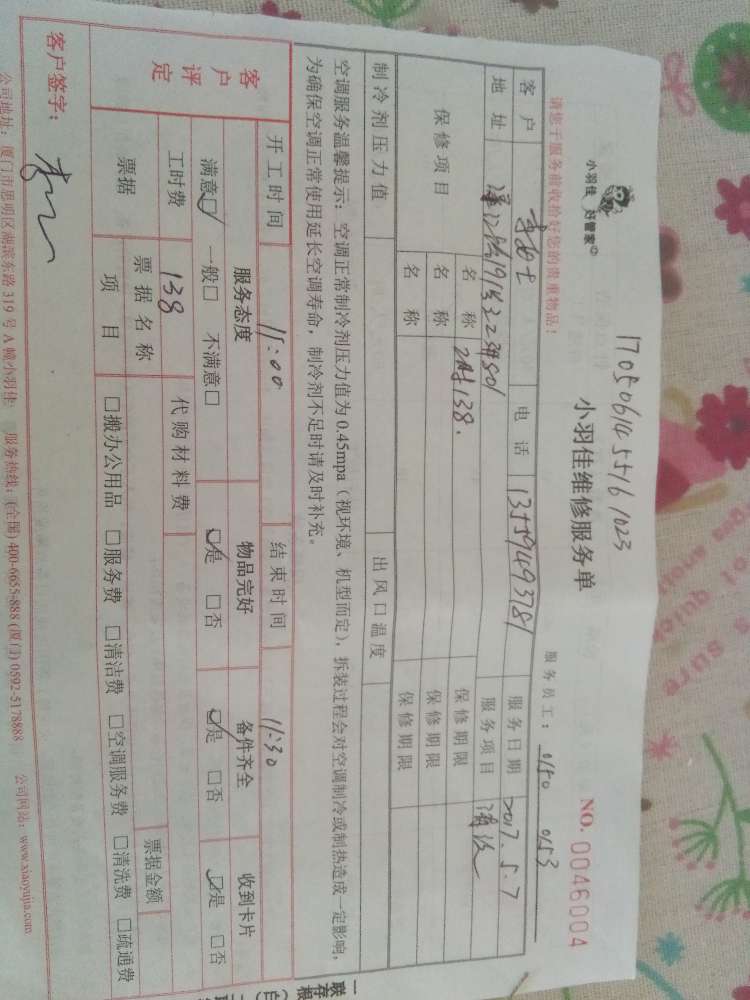 1705061455161023
小羽佳 好管家
小羽佳维修服务单
NO. 0046004
服务员工: 0150 0153
请您于服务前收拾好您的贵重物品!
客户 李女士 电话 13559493781 服务日期 2017.5.7
地址 服务项目 清洗
保修项目 名称 2时138. 保修期限
名称 保修期限
名称 保修期限
制冷剂压力值 出风口温度
空调服务温馨提示: 空调正常制冷剂压力值为0.45mpa(视环境、机型而定), 拆装过程会对空调制冷或制热造成一定影响,
为确保空调正常使用延长空调寿命, 制冷剂不足时请及时补充。
开工时间 11:00 结束时间 11:30
客户评定
服务态度 物品完好 备件齐全 收到卡片
满意☑ 一般□ 不满意□ ☑是 □否 ☑是 □否 ☑是 □否
工时费 138 代购材料费
票据 票据名称 票据金额
项目 □搬办公用品 □服务费 □清洁费 □空调服务费 □清洗费 □疏通费
客户签字:
公司地址: 厦门市思明区湖滨东路319号A幢小羽佳 服务热线: (全国) 400-6655-888 (厦门) 0592-5178888 公司网站: www.xiaoyujia.com